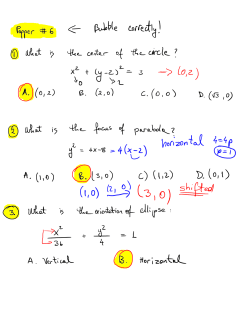 Paper #6 ← Bubble correctly!
① What is the center of the circle?
x² + (y-2)² = 3 → (0,2)
↘0 ↘2
A. (0,2) B. (2,0) C. (0,0) D. (√3,0)
② What is the focus of parabola?
y² = 4x-8 = 4(x-2) horizontal 4=4p
p=1
A. (1,0) B. (3,0) C. (1,2) D. (0,1)
(1,0) (2,0) (3,0) shifted
③ What is the orientation of ellipse:
x²/36 + y²/4 = 1
A. Vertical B. Horizontal